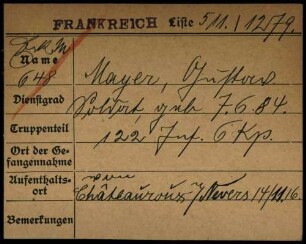 FRANKREICH Liste 511 / 12/79.
Name
648
Mayer, Gustav
Dienstgrad
Soldat, geb 7.6.84.
Truppenteil
122 Inf. 6 Kp.
Ort der Ge-
fangennahme
Aufenthalts-
ort
von
Châteauroux n/ Nevers 14/11 16.
Bemerkungen